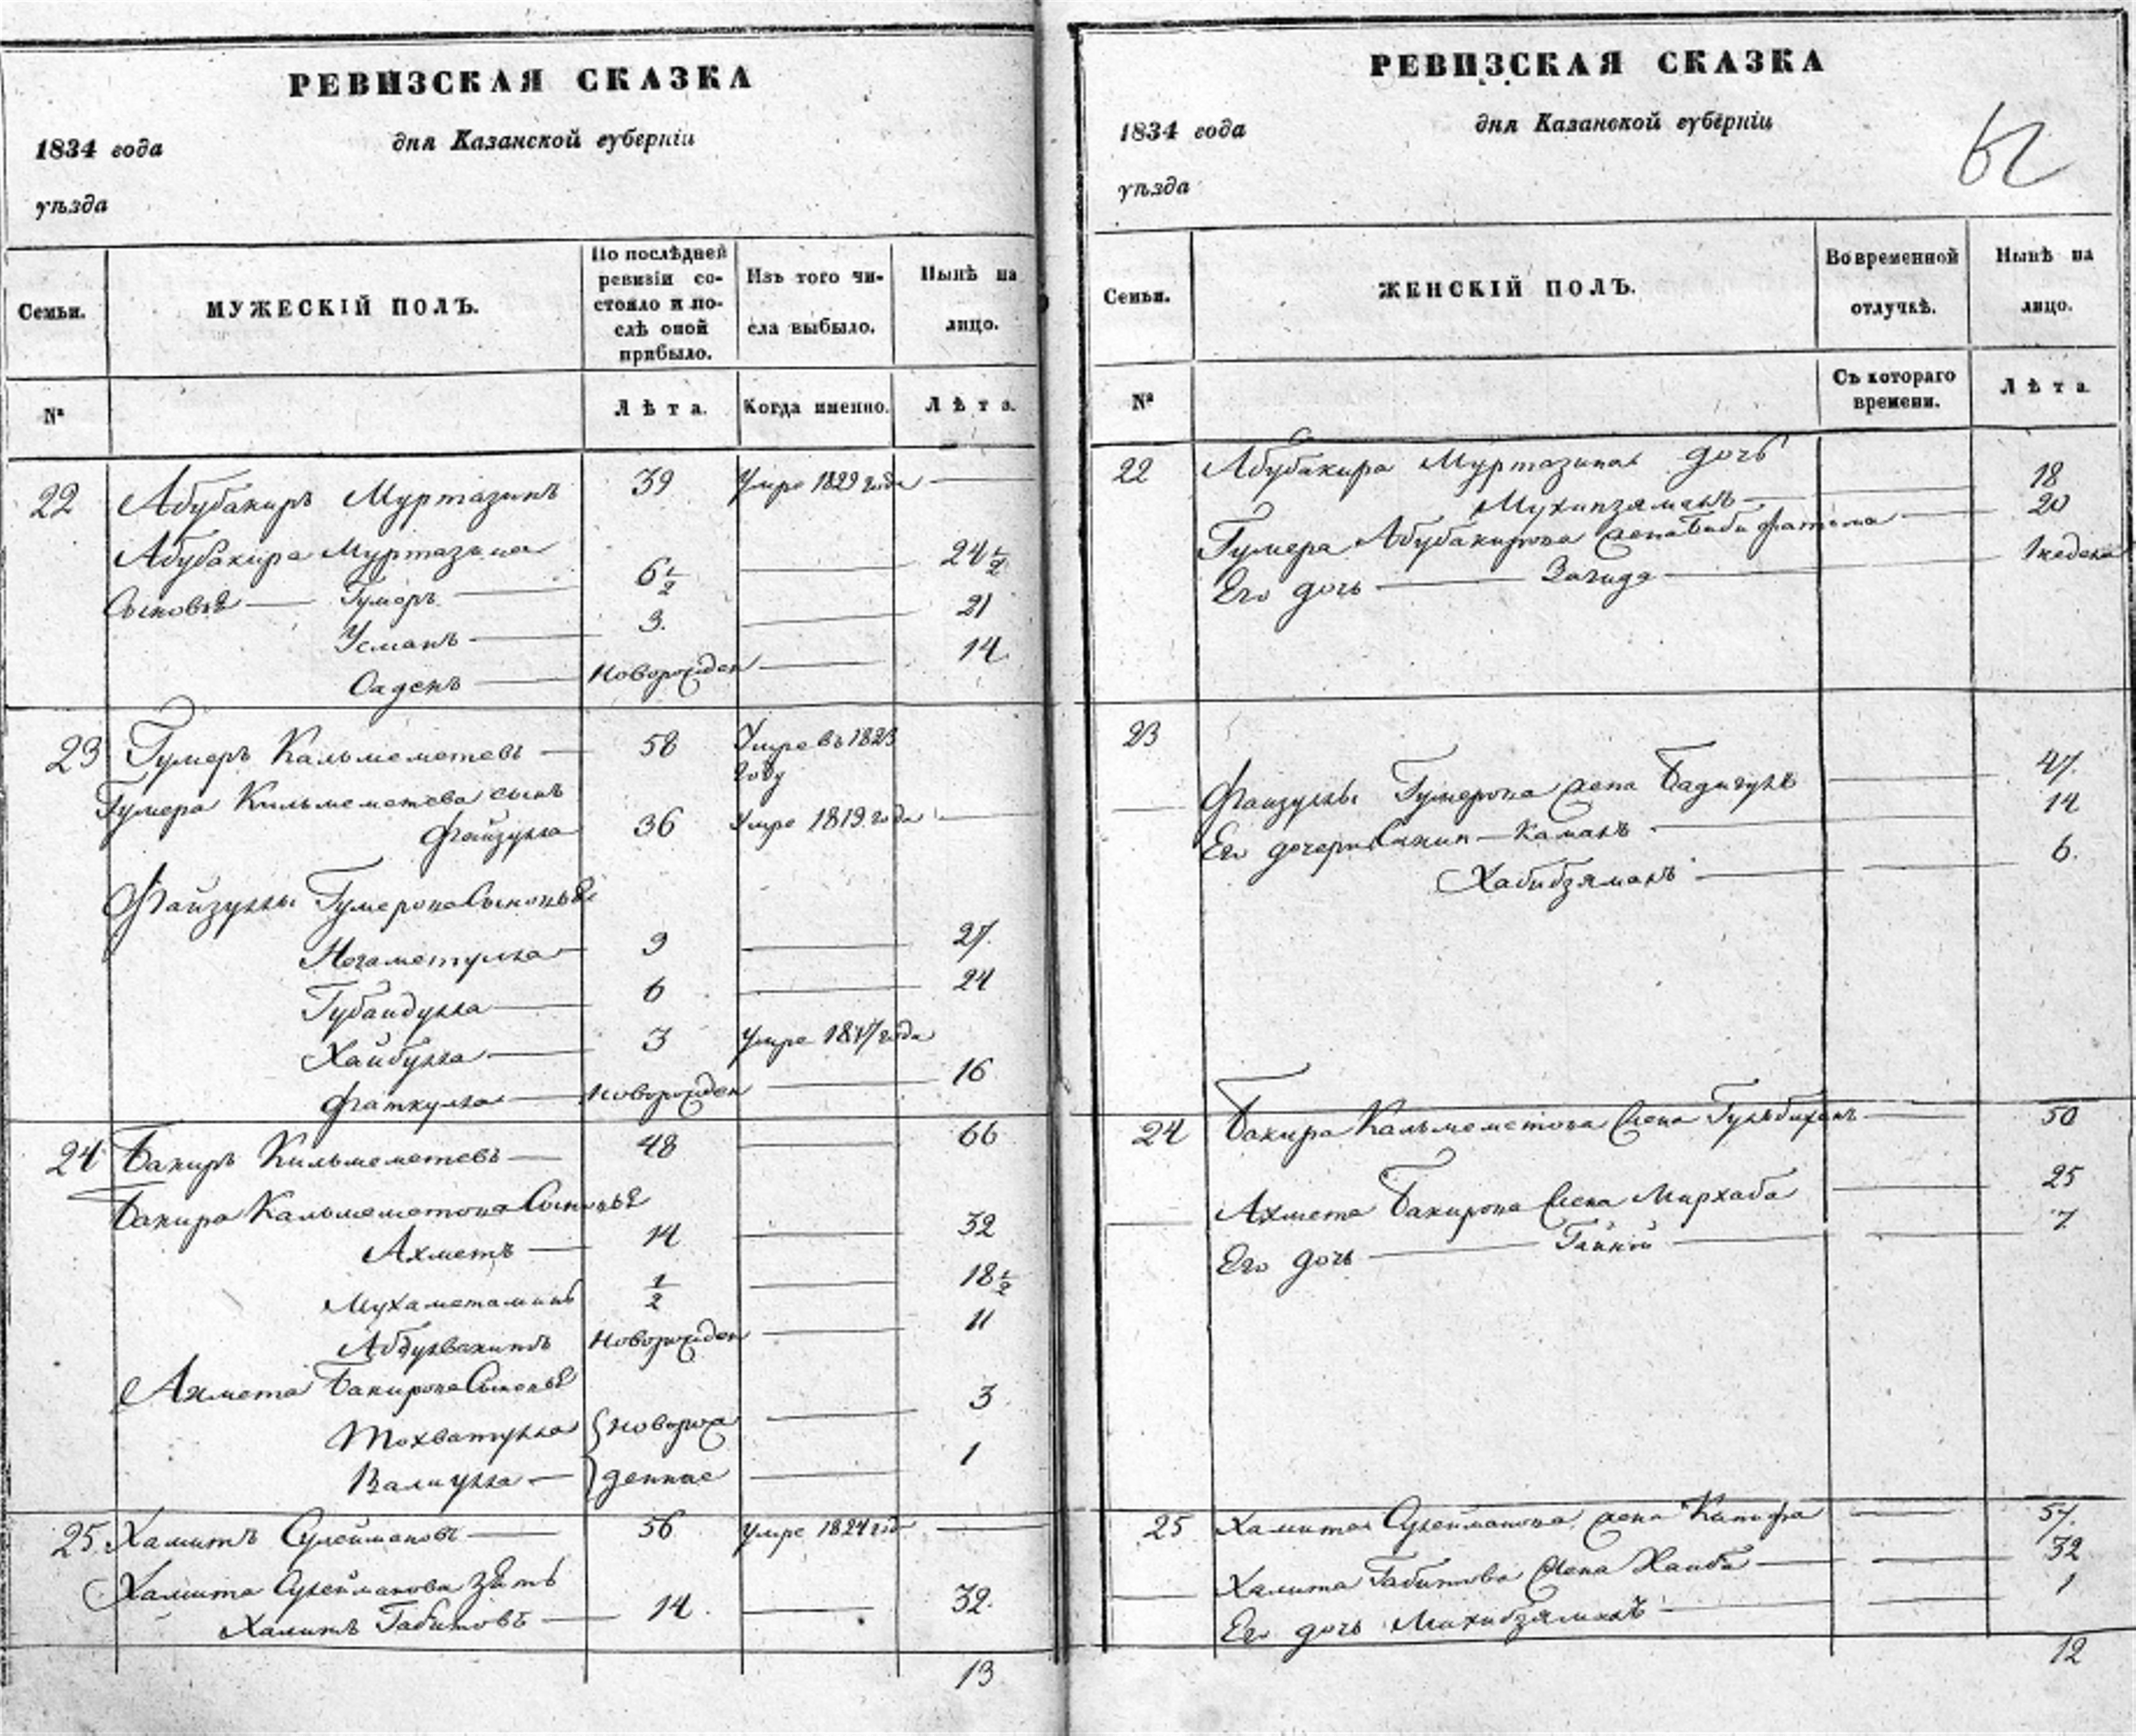 РЕВИЗСКАЯ СКАЗКА
1834 года
дня Казанской губерніи
уѣзда
Семьи.
МУЖЕСКІЙ ПОЛЪ.
По послѣдней ревизіи со-
стояло и по-
слѣ оной
прибыло.
Изъ того чи-
сла выбыло.
Нынѣ на
лицо.
№
Лѣта.
Когда именно.
Лѣта.
22 Абубакиръ Муртазинъ 39 Умре 1829 года
Абубакира Муртазина
Сыновья Гумеръ 6 1/2 24 1/2
Усманъ 3. 21
Саденъ Новорожден 14
23 Гумеръ Кильмеметевъ 58 Умре въ 1823
году
Гумера Кильмеметева сынъ
Файзулла 36 Умре 1819 года
Файзуллы Гумерова Сыновья
Негаметулла 9 27.
Губайдулла 6 24
Хайбулла 3 Умре 1817 года
Фаткулла Новорожден 16
24 Бакиръ Кильмеметевъ 48 66
Бакира Кильмеметева Сыновья
Ахметъ 14 32
Мухаметаминъ 1/2 18 1/2
Абдулвахитъ Новорожден 11
Ахмета Бакирова Сыновья
Тохватулла Новорож 3
Валиулла денные 1
25. Хамитъ Сулеймановъ 56 Умре 1824 год
Хамита Сулейманова зять
Халитъ Габитовъ 14. 32.
13
РЕВИЗСКАЯ СКАЗКА
1834 года
дня Казанской губерніи
уѣзда
62
Семьи.
ЖЕНСКІЙ ПОЛЪ.
Во временной
отлучкѣ.
Нынѣ на
лицо.
№
Съ котораго
времени.
Лѣта.
22 Абубакира Муртазина дочь
Мухипзяманъ 18
Гумера Абубакирова жена Биби фатема 20
Его дочь Загида 1 неделя
23
Файзуллы Гумерова жена Бадигулъ 47.
Его дочери Камалъ 14
Хабибзямалъ 6.
24 Бакира Кильмеметова жена Гульбиханъ 50
Ахмета Бакирова жена Мирхаба 25
Его дочь 7
25 Хамита Сулейманова жена Катифа 57.
Халита Габитова жена Хаиба 32
Его дочь Михибзямалъ 1
12